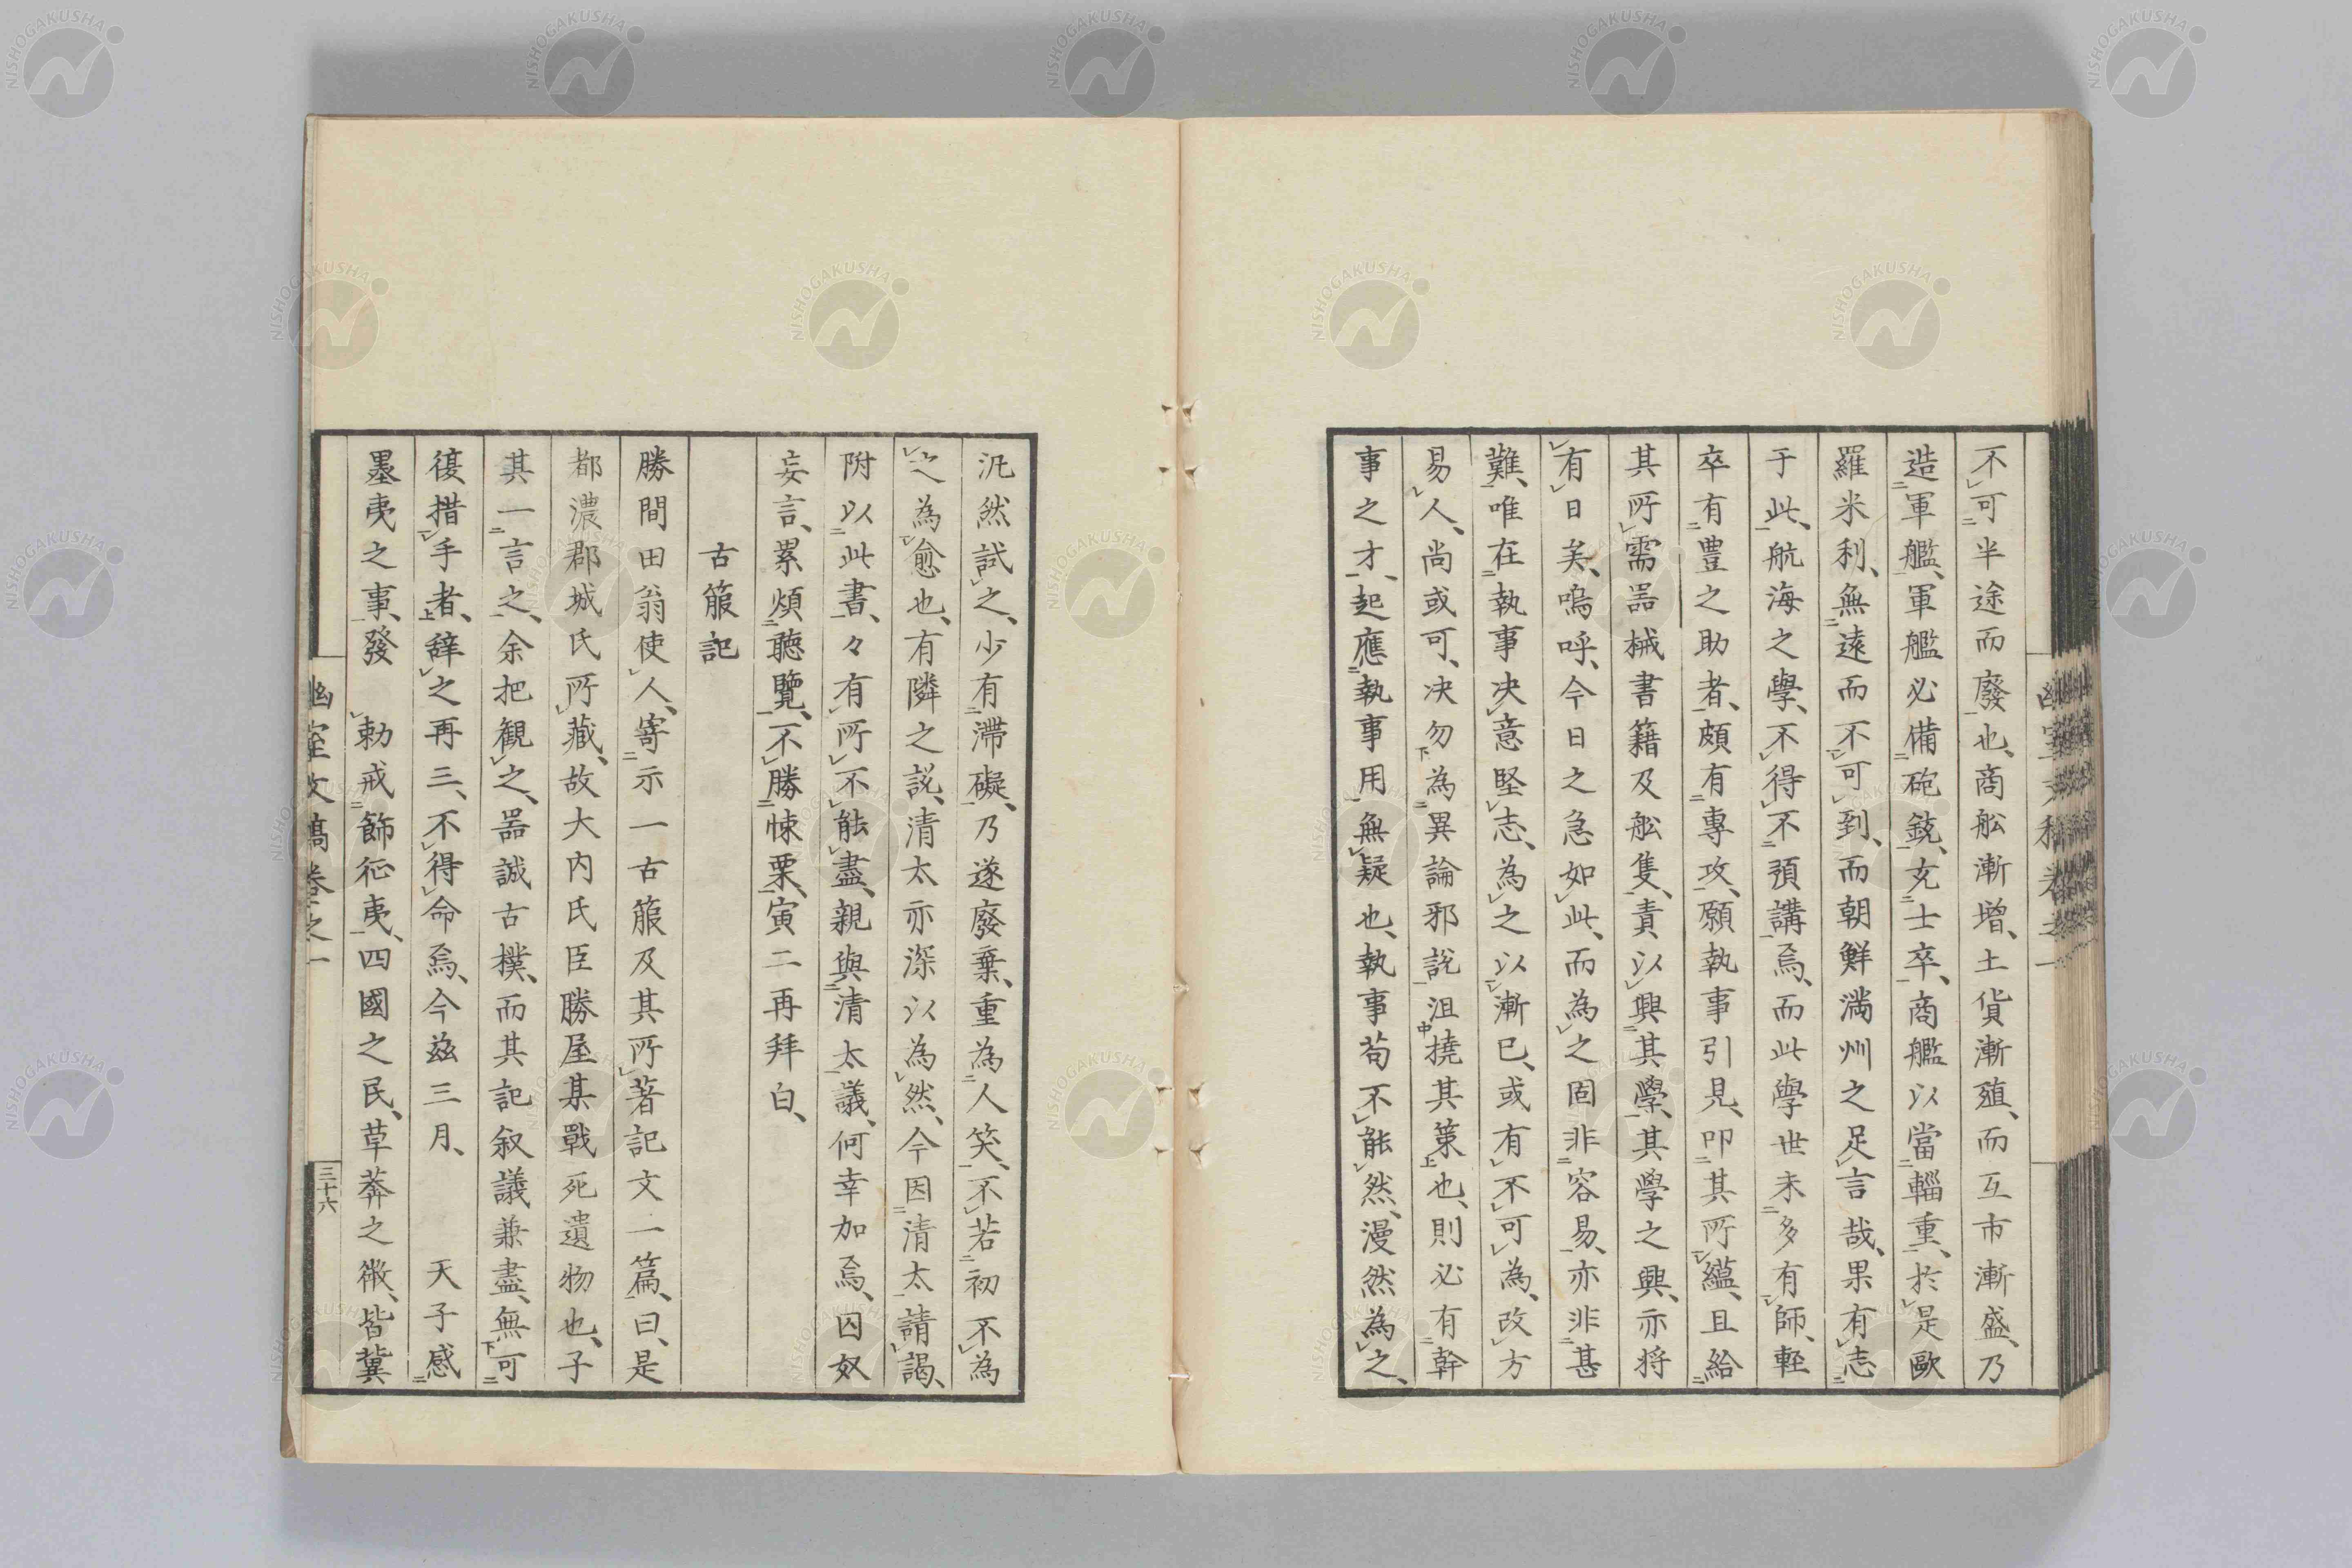 不可半途而廢也、商舩漸增、土貨漸殖、而互市漸盛、乃
造軍艦、軍艦必備砲銃、充士卒、商艦以當輜重、於是歐
羅米利、無遠而不可到、而朝鮮滿州之足言哉、果有志
于此、航海之學、不得不預講焉、而此學世未多有師、輕
卒有豊之助者、頗有專攻、願執事引見、叩其所蘊、且給
其所需器械書籍及舩隻、責以興其學、其學之興、亦将
有日矣、嗚呼、今日之急如此、而為之固非容易、亦非甚
難、唯在執事决意堅志、為之以漸已、或有不可為、改方
易人、尚或可、决勿為異論邪說沮撓其策也、則必有幹
事之才、起應執事用無疑也、執事苟不能然、漫然為之、
汎然試之、少有滯礙、乃遂廢棄、重為人笑、不若初不為
之為愈也、有隣之說、清太亦深以為然、今因清太請謁、
附以此書、々有所不能盡、親與清太議、何幸加焉、囚奴
妄言、累煩聽覽、不勝悚栗、寅二再拜白、
古箙記
勝間田翁使人寄示一古箙及其所著記文一篇、曰、是
都濃郡城氏所藏、故大内氏臣勝屋某戰死遺物也、子
其一言之、余把観之、器誠古樸、而其記叙議兼盡、無可
復措手者、辭之再三、不得命焉、今茲三月、天子感
墨夷之事、發勅戒飾征夷、四國之民、草莾之微、皆冀
幽室文稿卷之一
三十六
NISHOGAKUSHA